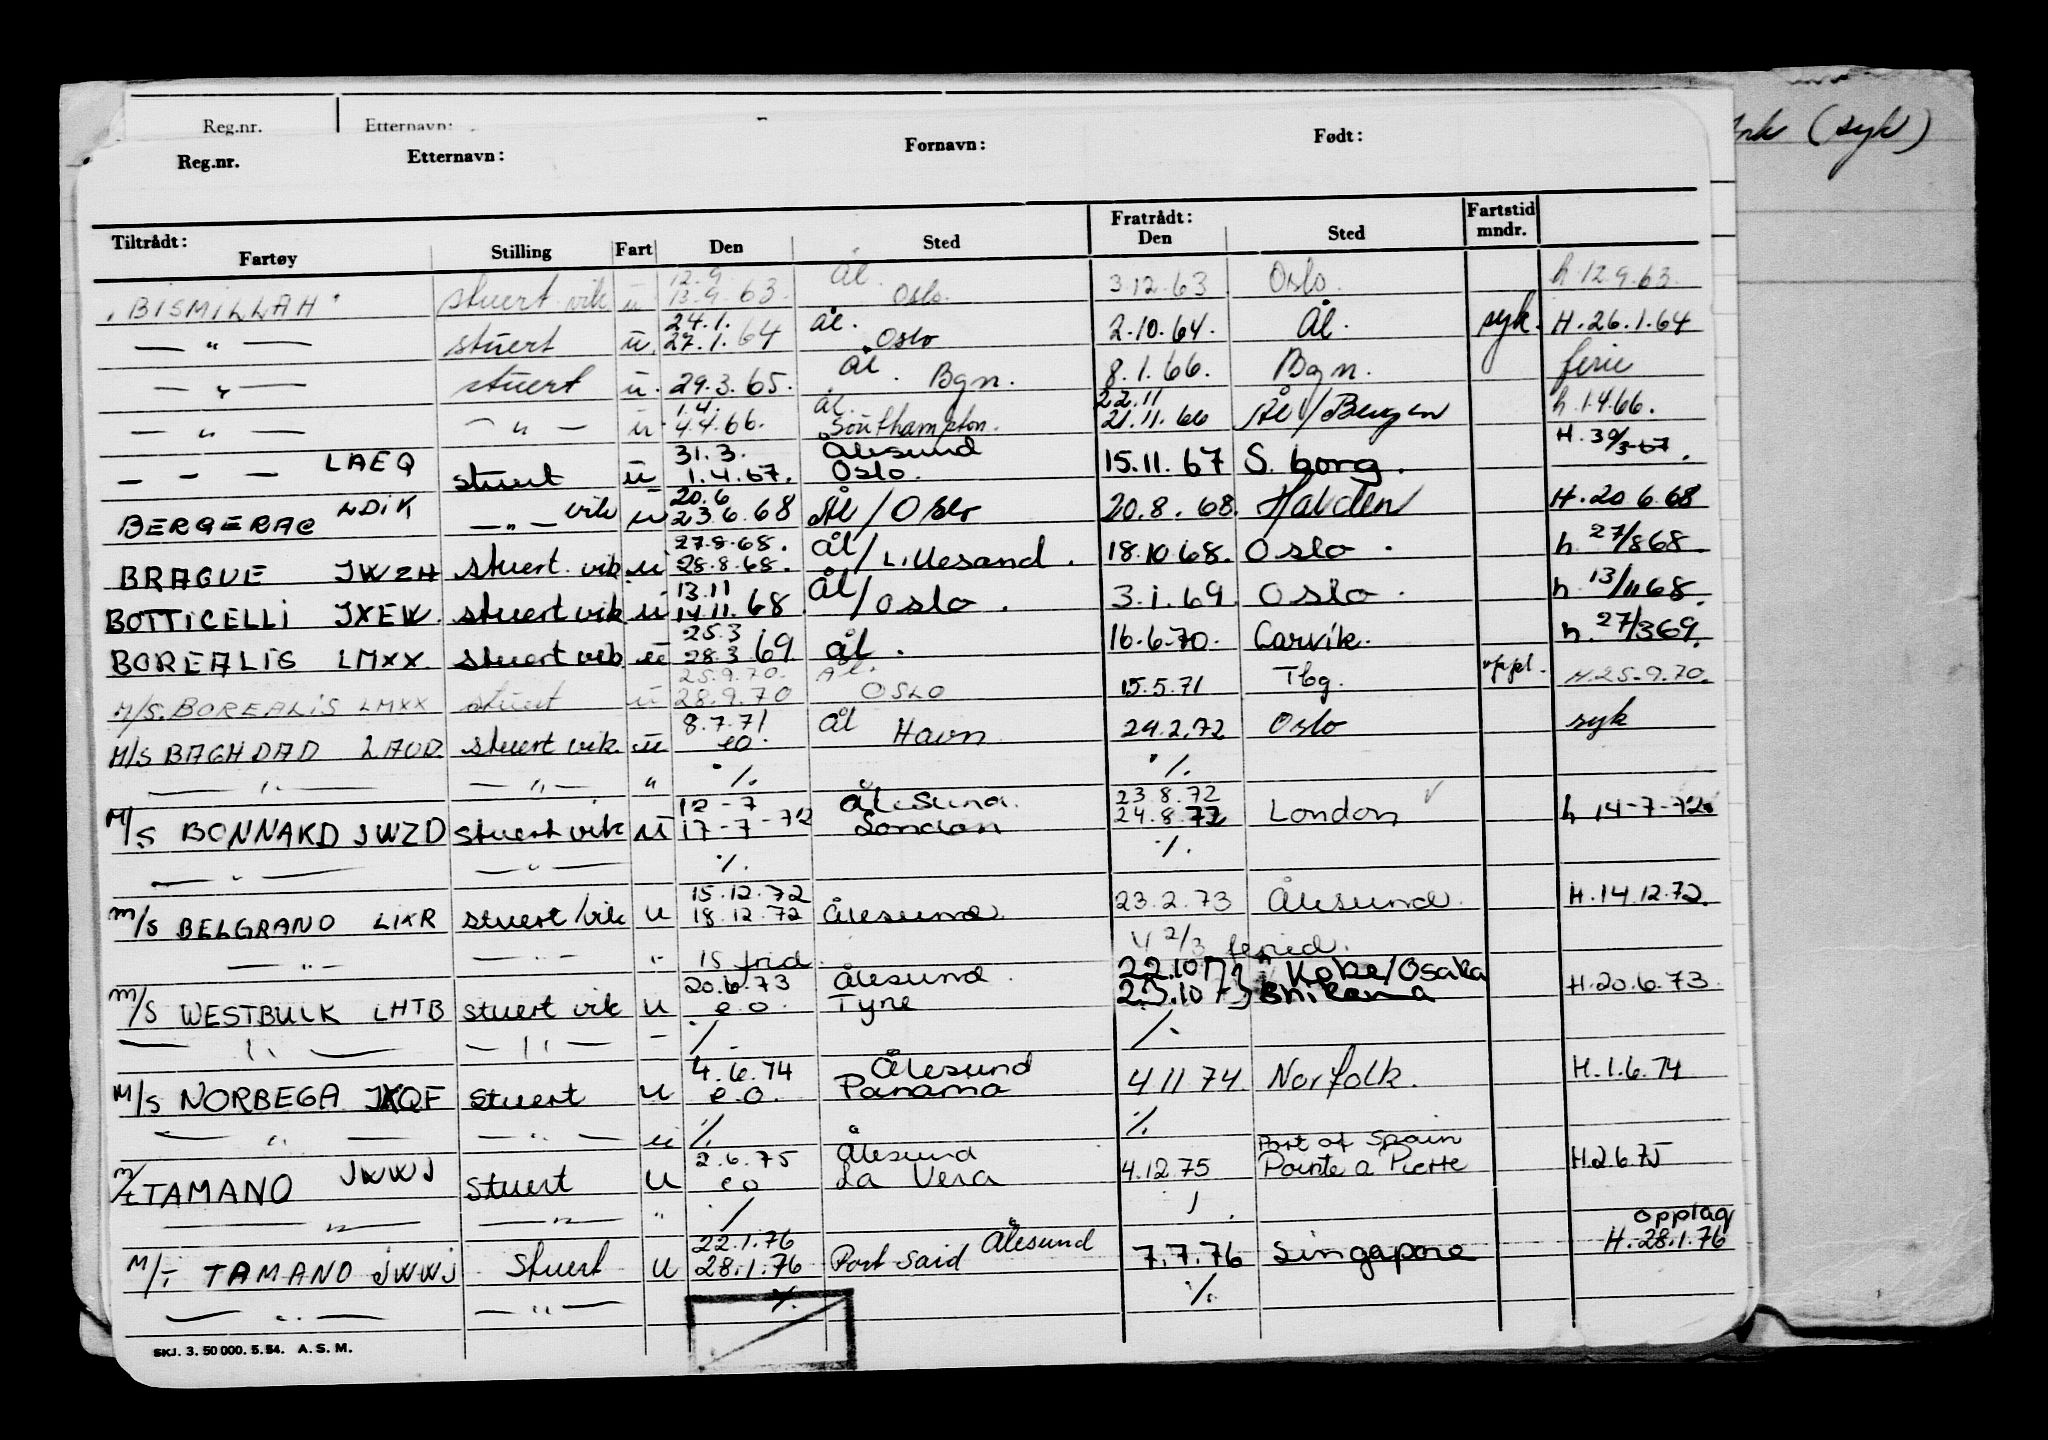 (syk)
Reg.nr. Etternavn:
Reg.nr. Etternavn: Fornavn: Født:
Tiltrådt: Fratrådt: Fartstid
Fartøy Stilling Fart Den Sted Den Sted mndr.
12.9 Ål.
"BISMILLAH" stuert vik u 13.9.63. Oslo. 3.12.63 Oslo. h.12.9.63.
24.1. Ål.
— " — stuert u. 27.1.64 Oslo 2.10.64. Ål. syk. H.26.1.64
— " — stuert u. 29.3.65. Ål. Bgn. 8.1.66. Bgn. ferie
1.4. Ål. 22.11
— " — — " — u 4.4.66. Southampton. 21.11.66 Ål/Bergen h.1.4.66.
31.3. Ålesund
— — — LAEQ stuert u 1.4.67. Oslo. 15.11.67 S.borg. H.30/3-67.
20.6
BERGERAC LDIK — " — vik u 23.6.68 Ål/Oslo 20.8.68. Halden H.20.6.68
27.8.68.
BRAGUE JWZH stuert vik. u 28.8.68. Ål/Lillesand. 18.10.68. Oslo. h. 27/868.
13.11
BOTTICELLI JXEW. stuert vik u 14.11.68. Ål/Oslo. 3.1.69. Oslo. h. 13/1168.
25.3
BOREALIS LMXX stuert vik u 28.3 69 Ål. 16.6.70. Larvik. h. 27/369.
25.9.70. Ål.
M/S. BOREALIS LMXX stuert u 28.9.70 OSLO 15.5.71 Tbg. oppl. H.25.9.70.
8.7.71
M/S BAGHDAD LAUD stuert vik u eo. Ål Havn 29.2.72 Oslo syk
— " — — " — " ·/. ·/.
12-7 Ålesund. 23.8.72
M/S BONNARD JWZD stuert vik u 17-7-72 London 24.8.72 London h 14-7-72.
— " — — " — ·/. ·/.
15.12.72
m/s BELGRANO LIKR stuert/vik u 18.12.72 Ålesund. 23.2.73 Ålesund. H.14.12.72.
— " — — " — " 15 frid. 4 2/3 feried.
20.6.73 Ålesund. 22.10.73 Kobe/Osaka
m/s WESTBULK LHTB stuert vik u e.o. Tyne 23.10.73 H.20.6.73.
— " — — " — — ·/. ·/.
4.6.74 Ålesund
M/S NORBEGA JXQF stuert u e.o. Panama 4 11 74. Norfolk. H.1.6.74
— " — — " — u ·/. ·/.
2.6.75 Ålesund Port of Spain
m/t TAMANO JWWJ stuert u eo La Vera 4.12.75 Pointe a Pierre H.2.6.75
— " — — " — " ·/. ·/.
22.1.76 Ålesund opplag
M/T TAMANO JWWJ Stuert u 28.1.76 Port Said 7.7.76 Singapore H.28.1.76
— " — — " — ·/. ·/.
SKJ. 3. 50 000. 5. 54. A. S. M.